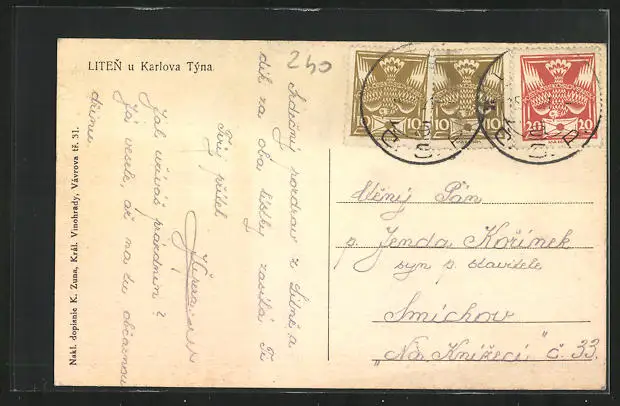 LITEŇ u Karlova Týna.
240
Srdečný pozdrav z Litně a
dík za oba lístky zasílá Ti
Tvůj přítel
Jak užíváš prázdnin?
Já vesele, ač na tu občasnou
dřinu.
Nakl. dopisnic K. Zuna, Král. Vinohrady, Vávrova tř. 31.
10 10
10 10
20 20
Ctěný Pán
p. Jenda Kořínek
syn p. stavitele
Smíchov
"Na Knížecí" č. 33.